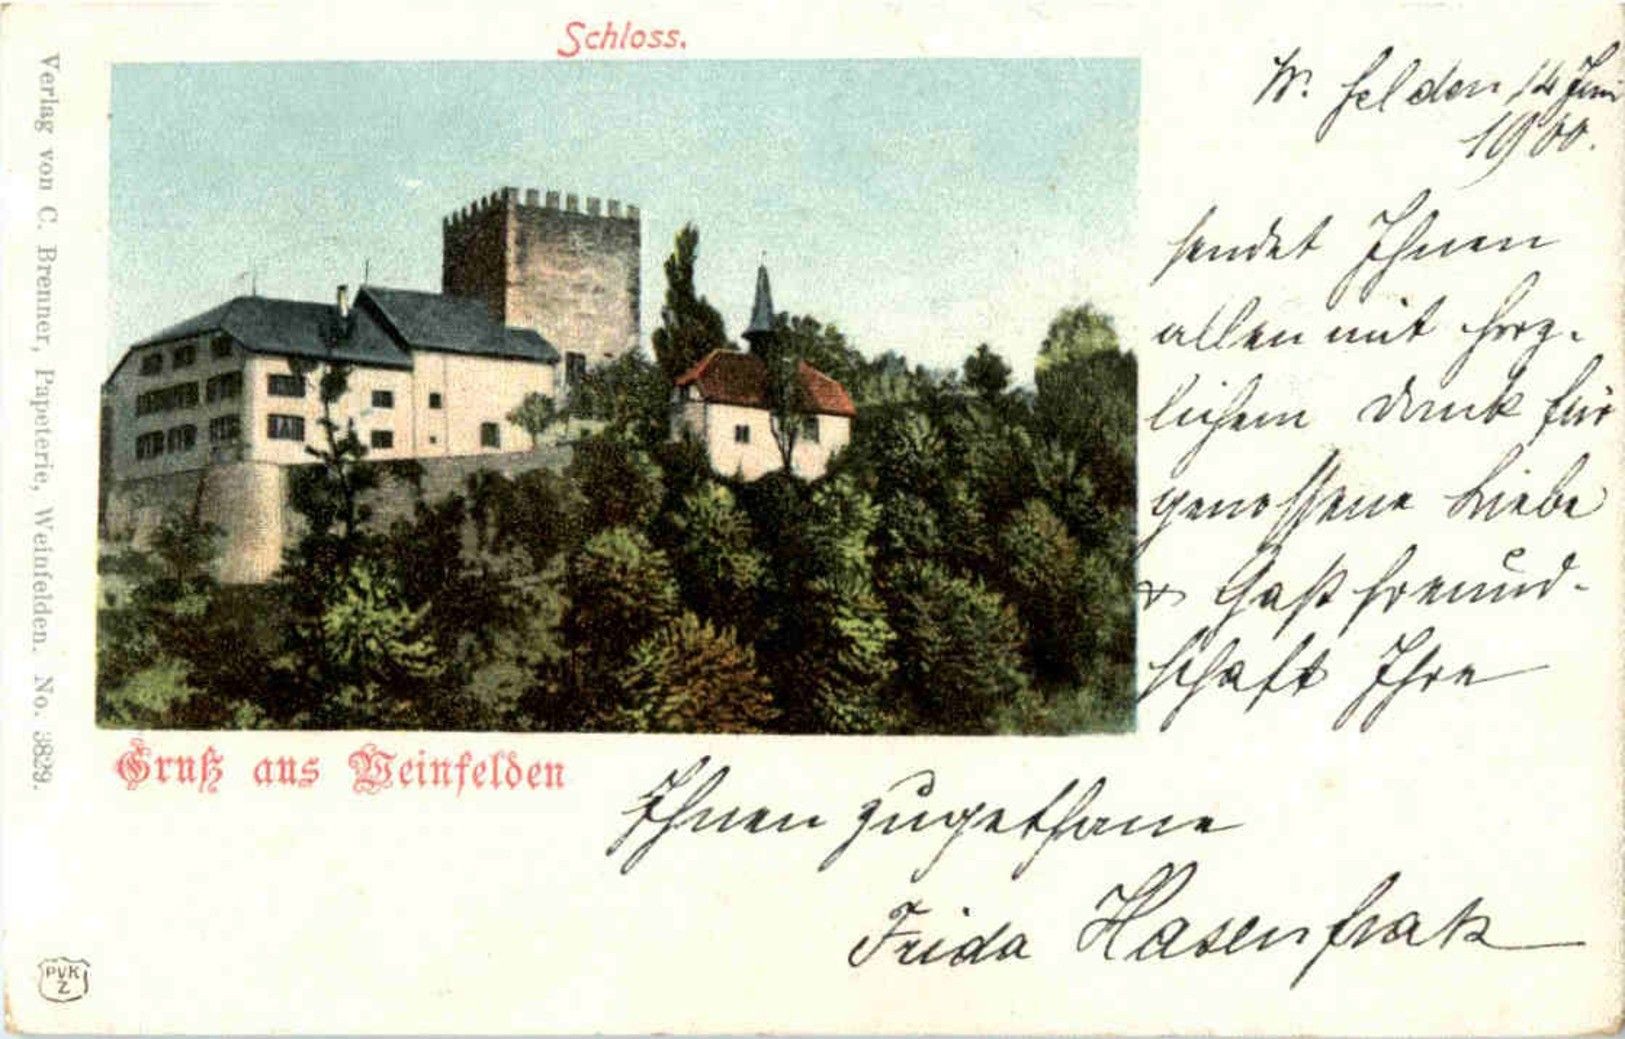 Schloss.
Verlag von C. Brenner, Papeterie, Weinfelden. No. 3829.
W. felden 14 Juni
1900.
sendet Ihnen
allen mit herz-
lichem Dank für
genossene Liebe
& Gastfreund-
schaft Ihre
Gruß aus Weinfelden
Ihnen zugethane
Frida Hasenfratz
PVK
Z